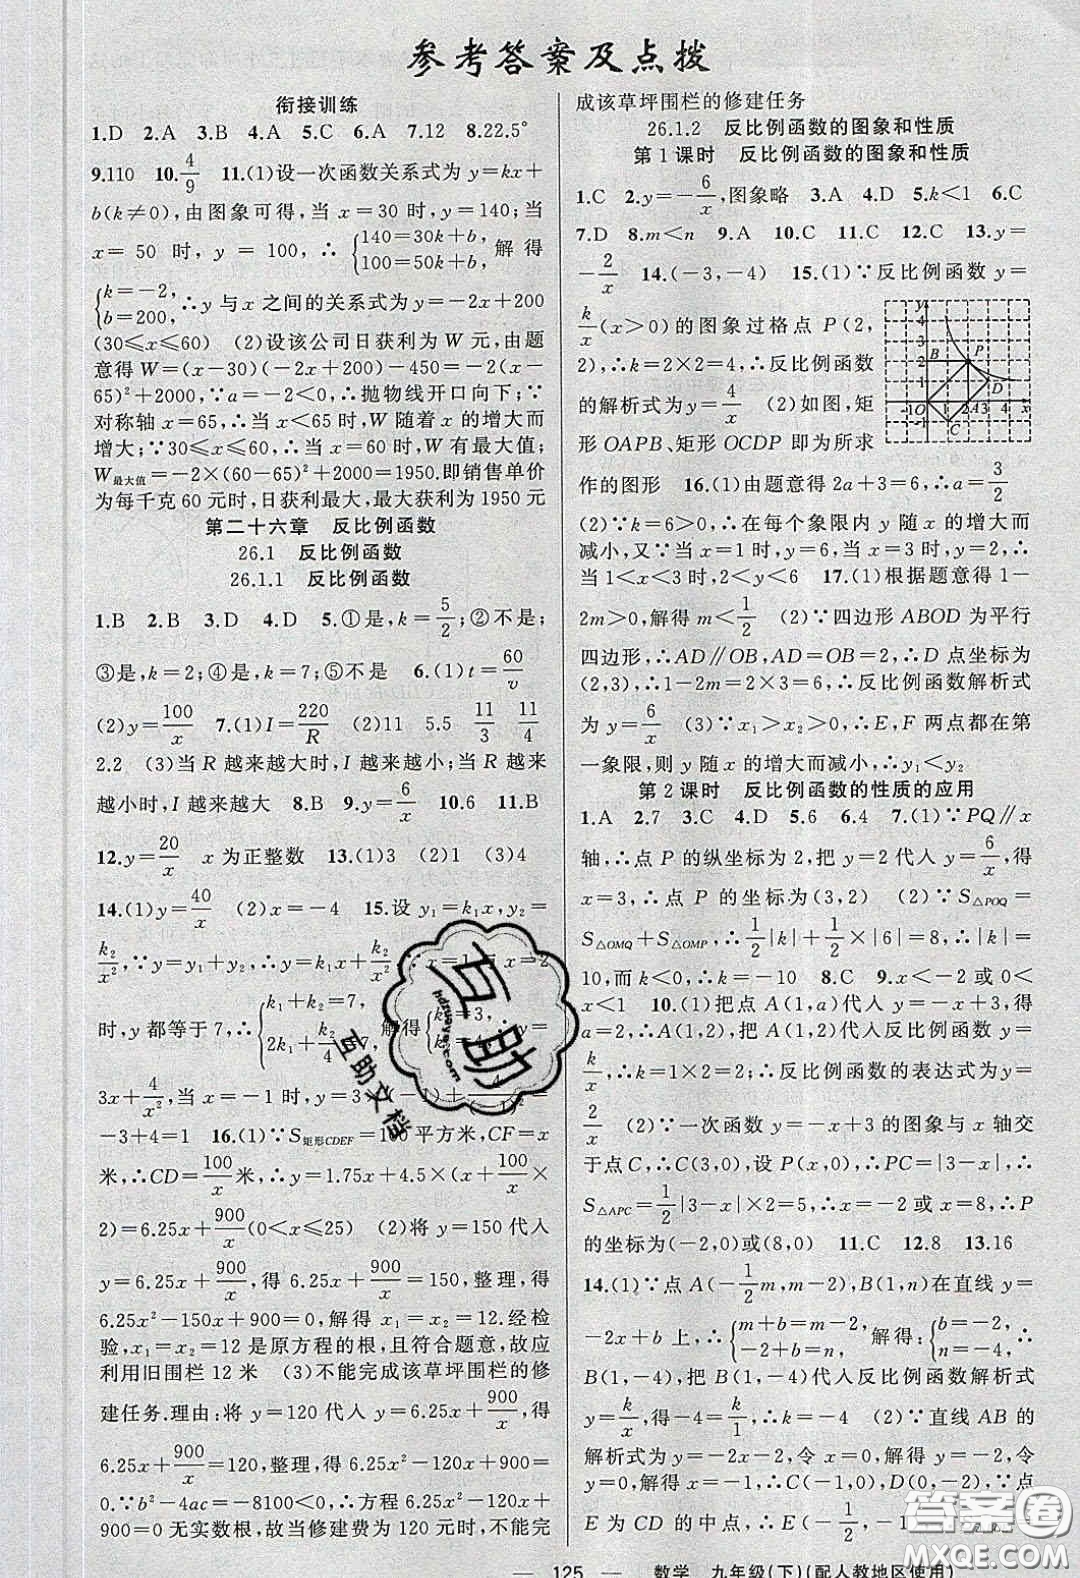 参考答案及点拨
衔接训练
1.D 2.A 3.B 4.A 5.C 6.A 7.12 8.22.5°
9.110 10.4/9 11.(1)设一次函数关系式为 y=kx+
b(k≠0),由图象可得,当 x=30 时,y=140;当
x=50 时,y=100,∴{140=30k+b, 100=50k+b,解得
{k=-2, b=200,∴y 与 x 之间的关系式为 y=-2x+200
(30≤x≤60) (2)设该公司日获利为 W 元,由题
意得 W=(x-30)(-2x+200)-450=-2(x-
65)²+2000,∵a=-2<0,∴抛物线开口向下;∵
对称轴 x=65,∴当 x<65 时,W 随着 x 的增大而
增大;∵30≤x≤60,∴当 x=60 时,W 有最大值;
W最大值=-2×(60-65)²+2000=1950.即销售单价
为每千克 60 元时,日获利最大,最大获利为 1950 元
第二十六章 反比例函数
26.1 反比例函数
26.1.1 反比例函数
1.B 2.B 3.D 4.D 5.①是,k=5/2;②不是;
③是,k=2;④是,k=7;⑤不是 6.(1)t=60/v
(2)y=100/x 7.(1)I=220/R (2)11 5.5 11/3 11/4
2.2 (3)当 R 越来越大时,I 越来越小;当 R 越来
越小时,I 越来越大 8.B 9.y=6/x 10.6 11.B
12.y=20/x x 为正整数 13.(1)3 (2)1 (3)4
14.(1)y=40/x (2)x=-4 15.设 y₁=k₁x,y₂=
k₂/x²,∵y=y₁+y₂,∴y=k₁x+
时,y 都等于 7,∴{k₁+k₂=7, 2k₁+k₂/4=7, 解得
3x+4/x²
-3+4=1 16.(1)∵S矩形CDEF=100 平方米,CF=x
米,∴CD=100/x 米,∴y=1.75x+4.5×(x+100/x×
2)=6.25x+900/x(0<x≤25) (2)将 y=150 代入
y=6.25x+900/x,得 6.25x+900/x=150,整理,得
6.25x²-150x+900=0,解得 x₁=x₂=12.经检
验,x₁=x₂=12 是原方程的根,且符合题意,故应
利用旧围栏 12 米 (3)不能完成该草坪围栏的修
建任务.理由:将 y=120 代入 y=6.25x+900/x,得
6.25x+900/x=120,整理,得 6.25x²-120x+900=
0.∵b²-4ac=-8100<0,∴方程 6.25x²-120x+
900=0 无实数根,故当修建费为 120 元时,不能完
成该草坪围栏的修建任务
26.1.2 反比例函数的图象和性质
第 1 课时 反比例函数的图象和性质
1.C 2.y=-6/x,图象略 3.A 4.D 5.k<1 6.C
7.D 8.m<n 9.A 10.C 11.C 12.C 13.y=
-2/x 14.(-3,-4) 15.(1)∵反比例函数 y=
k/x(x>0)的图象过格点 P(2,
2),∴k=2×2=4,∴反比例函数
的解析式为 y=4/x (2)如图,矩
形 OAPB,矩形 OCDP 即为所求
作的图形 16.(1)由题意得 2a+3=6,∴a=3/2
(2)∵k=6>0,∴在每个象限内 y 随 x 的增大而
减小,又∵当 x=1 时,y=6,当 x=3 时,y=2,∴
当 1<x<3 时,2<y<6 17.(1)根据题意得 1-
2m>0,解得 m<1/2 (2)∵四边形 ABOD 为平行
四边形,∴AD∥OB,AD=OB=2,∴D 点坐标为
(2,3),∴1-2m=2×3=6,∴反比例函数解析式
为 y=6/x (3)∵x₁>x₂>0,∴E,F 两点都在第
一象限,则 y 随 x 的增大而减小,∴y₁<y₂
第 2 课时 反比例函数的性质的应用
1.A 2.7 3.C 4.D 5.6 6.4 7.(1)∵PQ∥x
轴,∴点 P 的纵坐标为 2,把 y=2 代入 y=6/x,得
x=3,∴点 P 的坐标为(3,2) (2)∵S△POQ=
S△OMQ+S△OMP,∴1/2|k|+1/2×|6|=8,∴|k|=
10,而 k<0,∴k=-10 8.C 9.x<-2 或 0<
x<1 10.(1)把点 A(1,a)代入 y=-x+3,得
a=2,∴A(1,2),把 A(1,2)代入反比例函数 y=
k/x,∴k=1×2=2;∴反比例函数的表达式为 y=
2/x (2)∵一次函数 y=-x+3 的图象与 x 轴交
于点 C,∴C(3,0),设 P(x,0),∴PC=|3-x|,∴
S△APC=1/2|3-x|×2=5,∴x=-2 或 x=8,∴P
的坐标为(-2,0)或(8,0) 11.C 12.8 13.16
14.(1)∵点 A(-1/2m,m-2),B(1,n)在直线 y=
-2x+b 上,∴{m+b=m-2, -2+b=n, 解得:{b=-2, n=-4,
∴B(1,-4),把 B(1,-4)代入反比例函数解析式
y=k/x,得-4=k/1,∴k=-4 (2)∵直线 AB 的
解析式为 y=-2x-2,令 x=0,解得 y=-2,令
y=0,解得 x=-1,∴C(-1,0),D(0,-2),∵点
E 为 CD 的中点,∴E(-1/2,-1
— 125 — 数学 九年级(下)(配人教地区使用)
y
4
3
2
1
B
P
D
O
1
2
A
3
4
x
-1
C
互助
hdzuoye.com
互助文档
答案圈
MXQE.COM